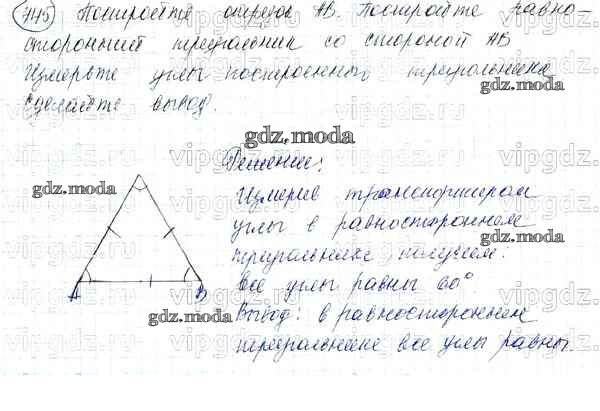 745 Постройте отрезок АВ. Постройте равно-
сторонний треугольник со стороной АВ
Измерьте углы построенного треугольника
Сделайте вывод.
gdz.moda
Решение:
Измерив транспортиром
углы в равностороннем
треугольнике получаем:
все углы равны 60°
Вывод: в равностороннем
треугольнике все углы равны.
A B
gdz.moda
gdz.moda
gdz.moda
gdz.moda
vipgdz.com